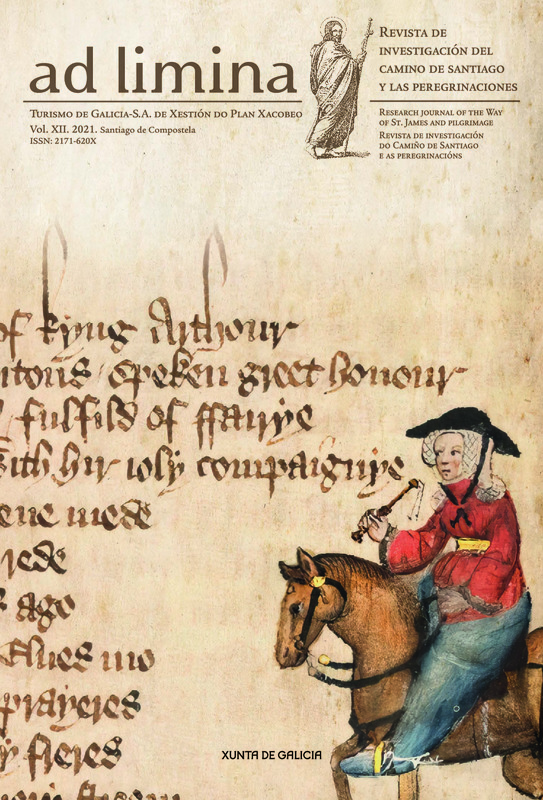 ad limina
TURISMO DE GALICIA-S.A. DE XESTIÓN DO PLAN XACOBEO
Vol. XII. 2021. Santiago de Compostela
ISSN: 2171-620X
REVISTA DE
INVESTIGACIÓN DEL
CAMINO DE SANTIAGO
Y LAS PEREGRINACIONES
RESEARCH JOURNAL OF THE WAY
OF ST. JAMES AND PILGRIMAGE
REVISTA DE INVESTIGACIÓN
DO CAMIÑO DE SANTIAGO
E AS PEREGRINACIÓNS
of kyng Arthour
itons speken greet honour
fulfild of ffairye
with hir ioly compaignye
ene mede
rede
ago
Elues mo
prayeres
freres
XUNTA DE GALICIA